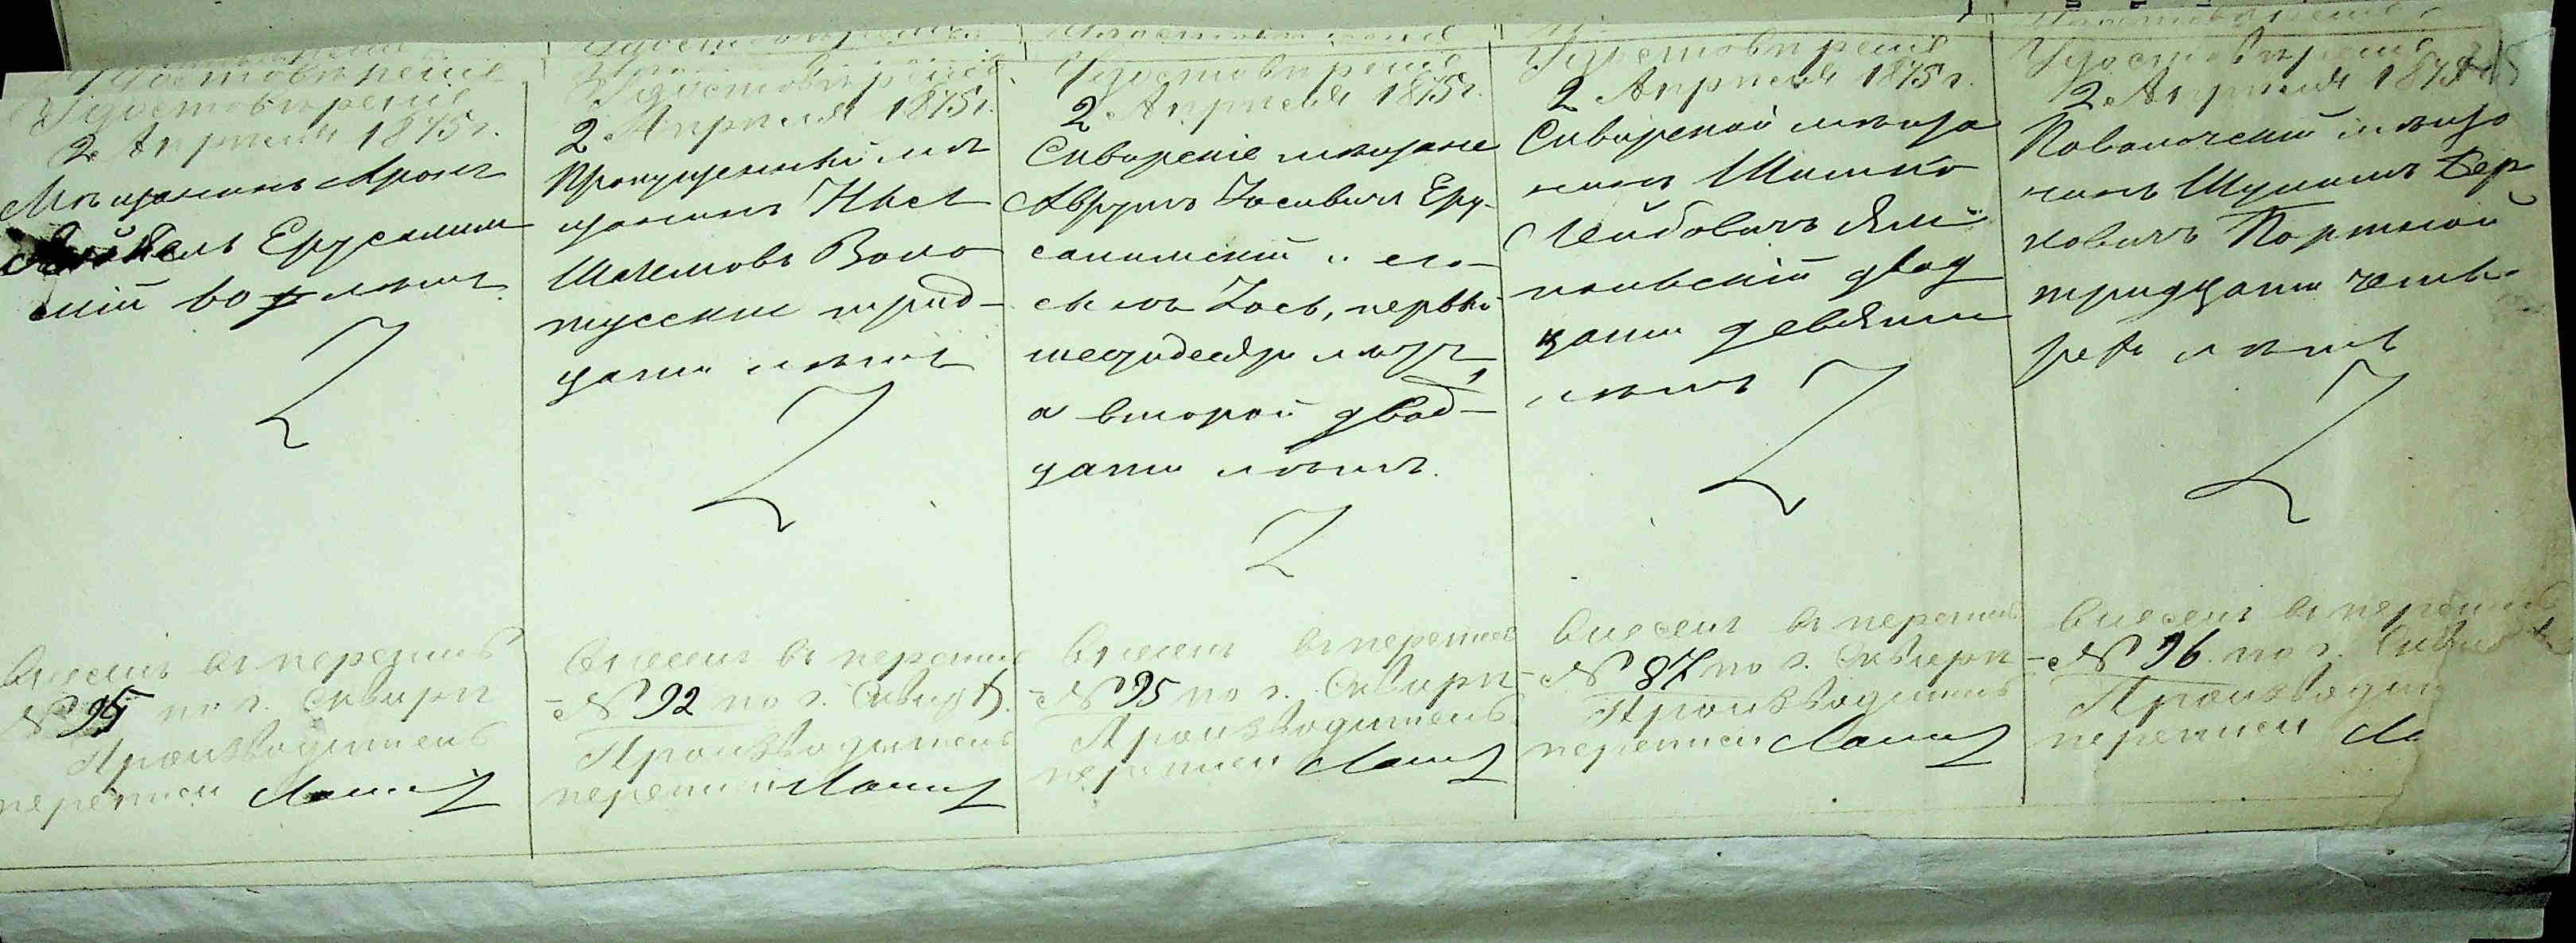 Удостовѣреніе
2 Апрѣля 1875 г.
Мѣщанинъ Аронъ
Ерусалим
скій 60 лѣтъ
Внесенъ въ перепись
№ 95 по г. Сквирѣ
Производитель
переписи
Удостовѣреніе
2 Апрѣля 1875 г.
Пропущенный мѣ
щанинъ
Шлемовъ Воло
трид-
цати лѣтъ
Внесенъ въ перепись
№ 92 по г. Сквирѣ.
Производитель
переписи
Удостовѣреніе
2 Апрѣля 1875 г.
Сквирскіе мѣщане
Аврумъ Іосивичъ Еру-
салимскій и его
сынъ Іось, первый
шестидесяти лѣтъ,
а второй двад-
цати лѣтъ.
Внесенъ въ перепись
№ 95 по г. Сквирѣ
Производитель
переписи
Удостовѣреніе
2 Апрѣля 1875 г.
Сквирской мѣща
нинъ Шимко
Лейбовичъ Ям
польскій двад
цати девяти
лѣтъ
Внесенъ въ перепись
№ 87 по г. Сквирѣ
Производитель
переписи
Удостовѣреніе
2 Апрѣля 187
Паволочскій мѣща
нинъ Шулимъ Бер
ковичъ Портной
тридцати четы
рехъ лѣтъ
Внесенъ въ перепись
№ 96 по г.
Производи
переписи